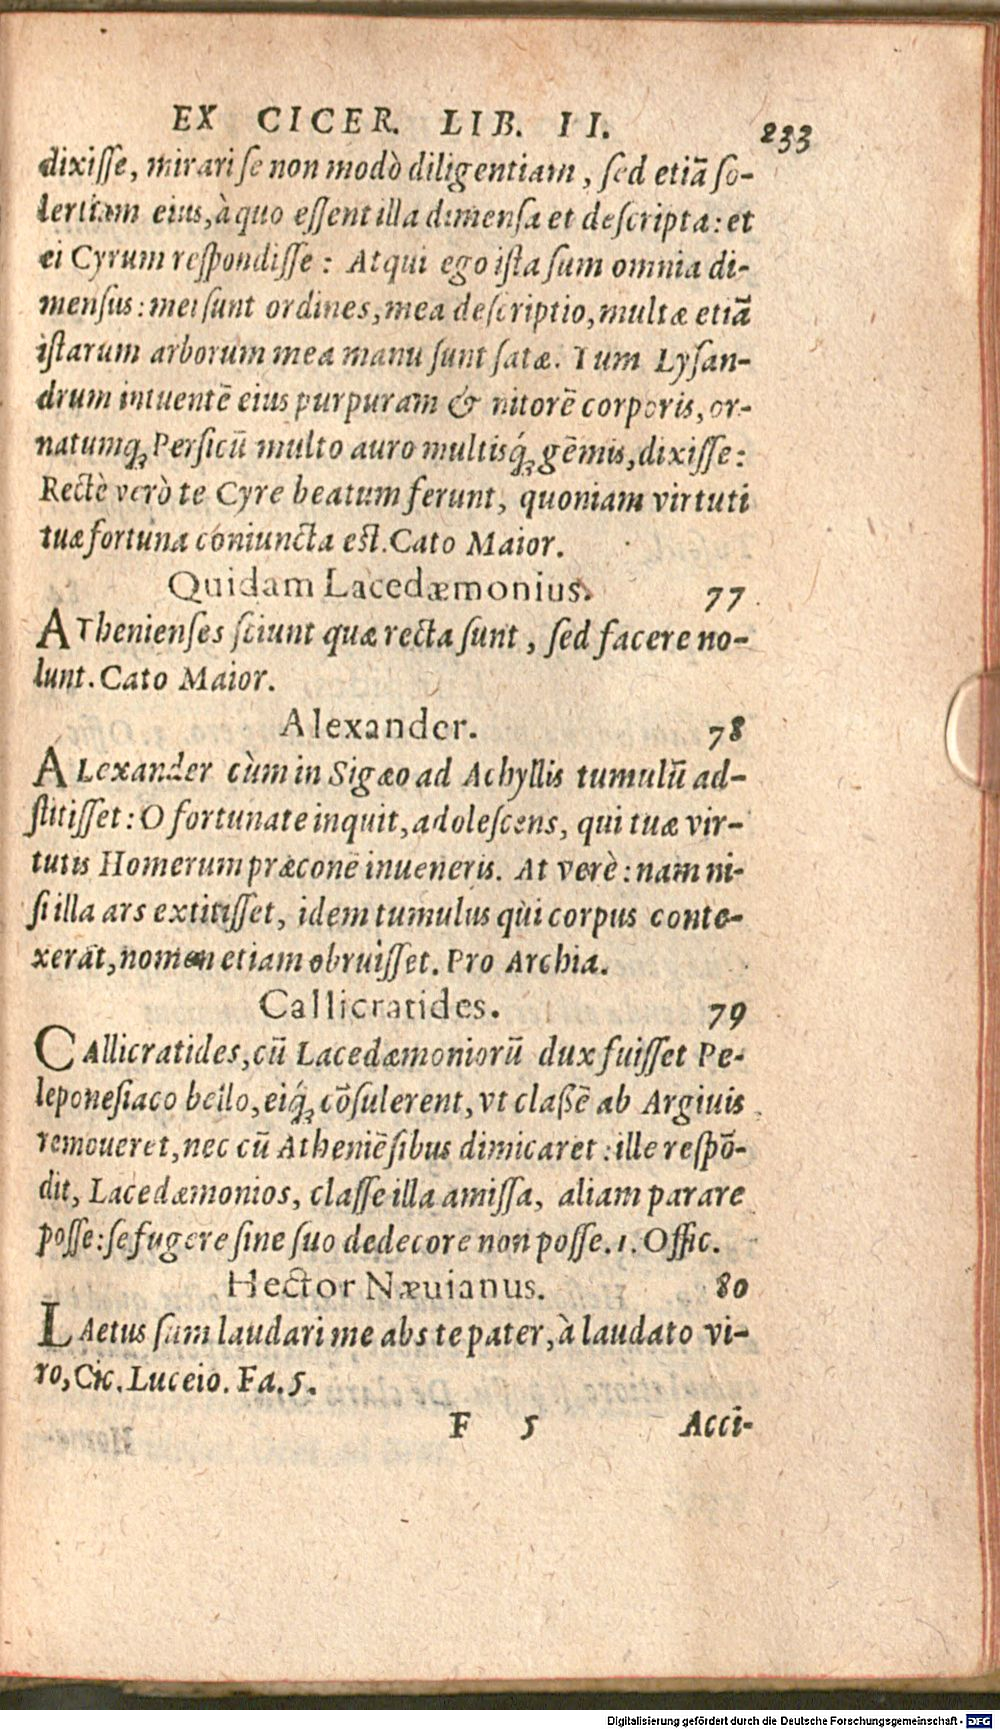 EX CICER. LIB. II. 233
dixiſſe, mirari ſe non modò diligentiam, ſed etiā ſo-
lertiam eius, à quo eſſent illa dimenſa et deſcripta: et
ei Cyrum reſpondiſſe: Atqui ego iſta ſum omnia di-
menſus: mei ſunt ordines, mea deſcriptio, multæ etiā
iſtarum arborum mea manu ſunt ſatæ. Tum Lyſan-
drum intuentē eius purpuram & nitorē corporis, or-
natumq́; Perſicū multo auro multisq́; gēmis, dixiſſe:
Rectè verò te Cyre beatum ferunt, quoniam virtuti
tuæ fortuna coniuncta eſt. Cato Maior.
Quidam Lacedæmonius. 77
AThenienſes ſciunt quæ recta ſunt, ſed facere no-
lunt. Cato Maior.
Alexander. 78
ALexander cùm in Sigæo ad Achyllis tumulū ad-
ſtitiſſet: O fortunate inquit, adoleſcens, qui tuæ vir-
tutis Homerum præconē inueneris. At verè: nam ni-
ſi illa ars extitiſſet, idem tumulus qui corpus conte-
xerat, nomen etiam obruiſſet. Pro Archia.
Callicratides. 79
CAllicratides, cū Lacedæmoniorū dux fuiſſet Pe-
leponeſiaco bello, eiq́; cōſulerent, vt claßē ab Argiuis
remoueret, nec cū Atheniēſibus dimicaret: ille reſpō-
dit, Lacedæmonios, claſſe illa amiſſa, aliam parare
poſſe: ſe fugere ſine ſuo dedecore non poſſe. 1. Offic.
Hector Næuianus. 80
LAetus ſum laudari me abs te pater, à laudato vi-
ro, Cic. Luceio. Fa. 5.
F 5 Acci-
Digitalisierung gefördert durch die Deutsche Forschungsgemeinschaft - DFG